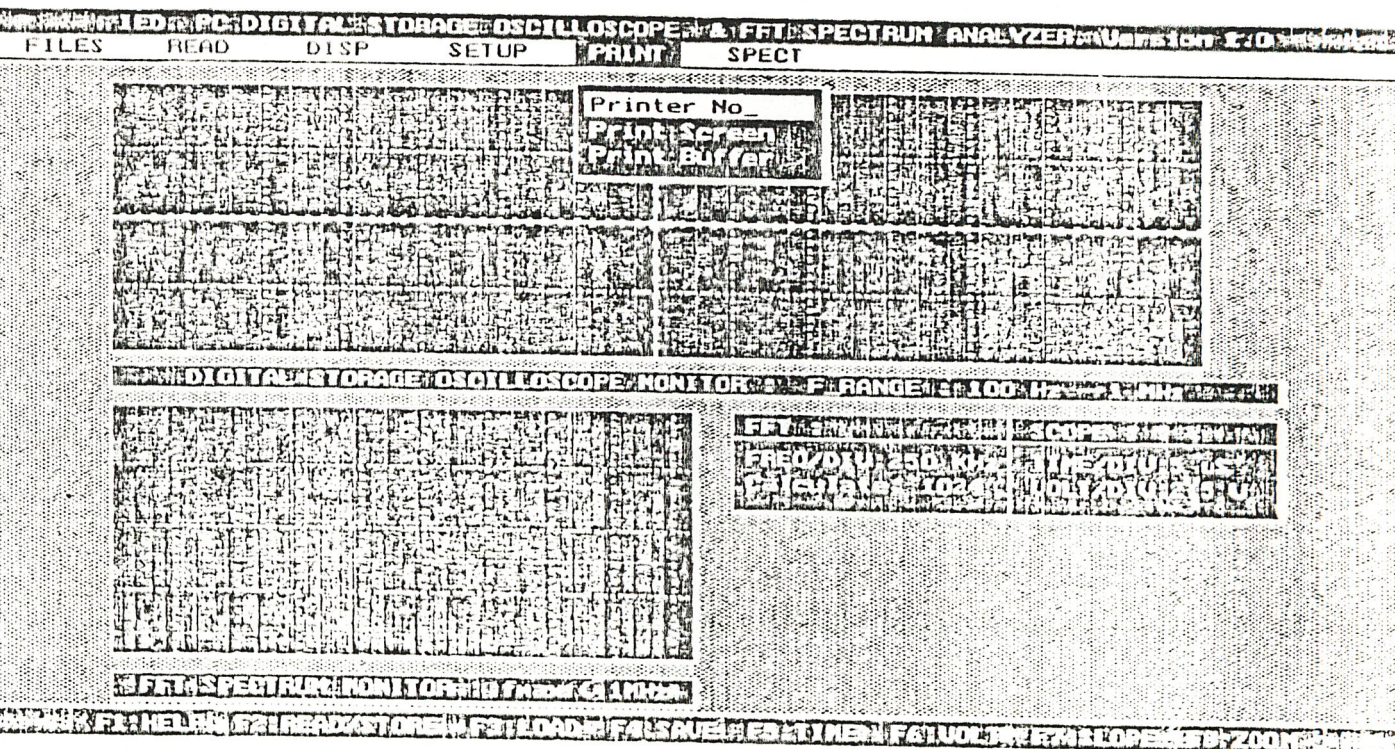 IED PC DIGITAL STORAGE OSCILLOSCOPE & FFT SPECTRUM ANALYZER Version 1.0
FILES READ DISP SETUP PRINT SPECT
Printer No_
Print Screen
Print Buffer
DIGITAL STORAGE OSCILLOSCOPE MONITOR F_RANGE : 100 Hz - 1 MHz
FFT SCOPE
FREQ/DIV: 250 KHz TIME/DIV: 5 us
Calculate : 1024 VOLT/DIV: V
FFT SPECTRUM MONITOR fmax 1MHz
F1:HELP F2:READ/STORE F3:LOAD F4:SAVE F5:TIMER F6:VOL F7:SLOPE F8:ZOOM